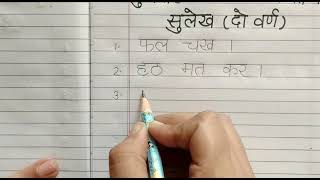 सुलेख (दो वर्ण)
1- फल चख ।
2- हठ मत कर ।
3-